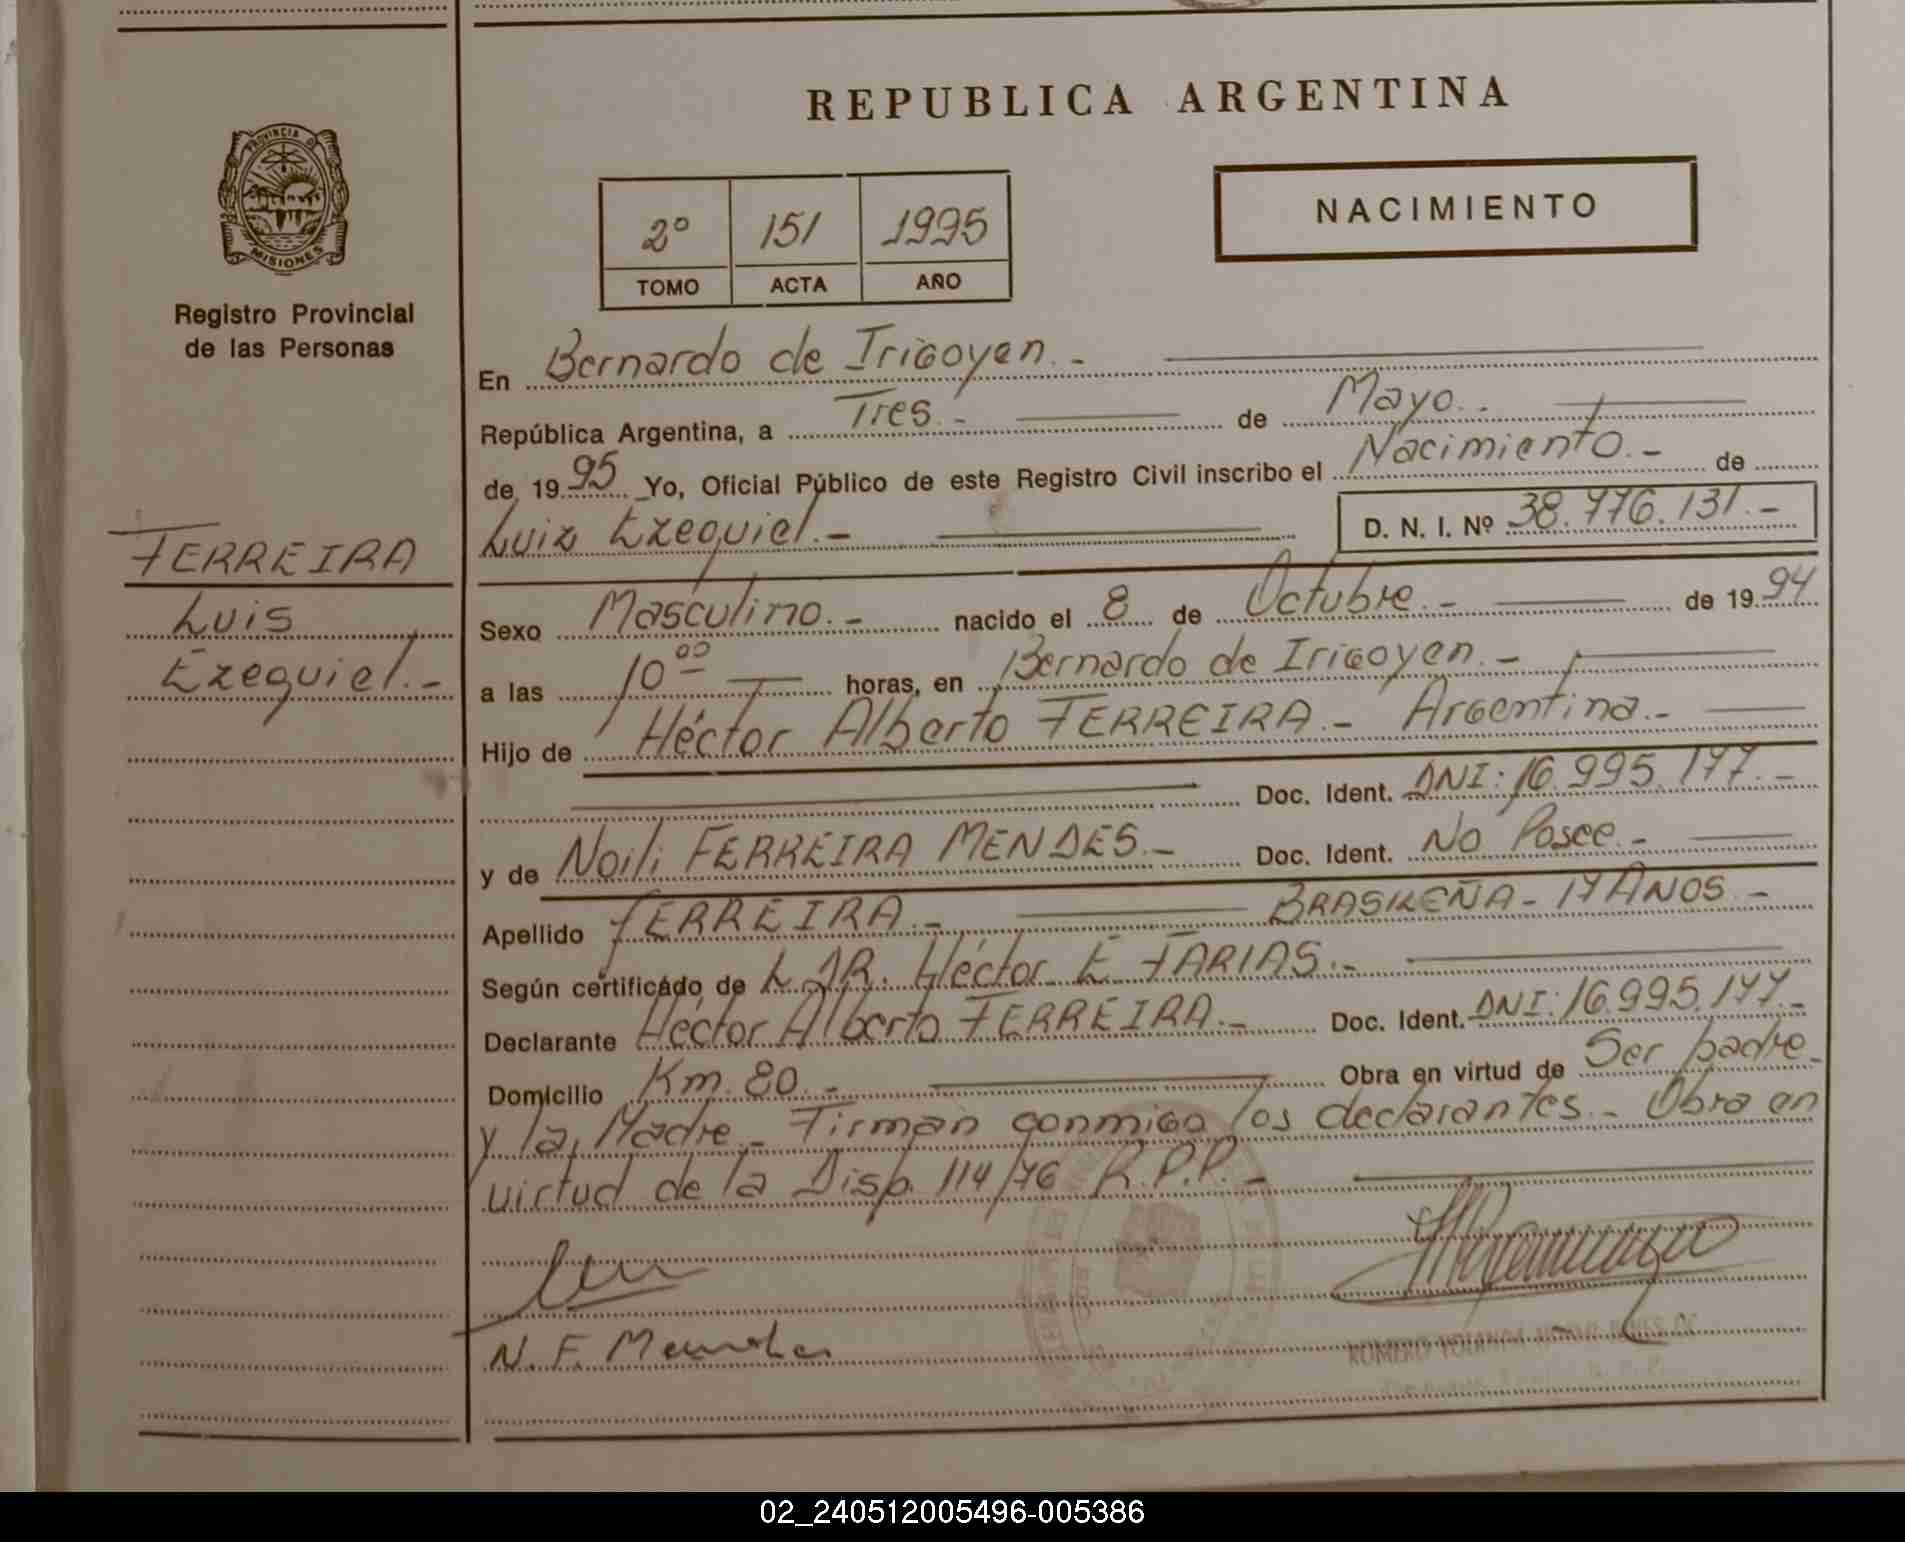 REPUBLICA ARGENTINA
PROVINCIA DE
MISIONES
Registro Provincial
de las Personas
2º 151 1995
TOMO ACTA AÑO
NACIMIENTO
En Bernardo de Irigoyen.-
República Argentina, a Tres.- de Mayo.-
de 1995 Yo, Oficial Público de este Registro Civil inscribo el Nacimiento.- de
Luiz Ezequiel.- D. N. I. Nº 38.776.131.-
FERREIRA
Luis
Ezequiel.-
Sexo Masculino.- nacido el 8 de Octubre.- de 1994
a las 10 00 horas, en Bernardo de Irigoyen.-
Hijo de Héctor Alberto FERREIRA.- Argentina.-
Doc. Ident. DNI: 16.995.177.-
y de Noili FERREIRA MENDES.- Doc. Ident. No Posee.-
Apellido FERREIRA.- BRASILEÑA - 17 AÑOS.-
Según certificado de L DR. Héctor E FARIAS.-
Declarante Héctor Alberto FERREIRA.- Doc. Ident. DNI: 16.995.177.-
Domicilio Km. 80.- Obra en virtud de Ser padre
y la Madre - Firman conmigo los declarantes.- Obra en
virtud de la Disp. 114/76 R.P.P.-
N. F. Mendes
02_240512005496-005386